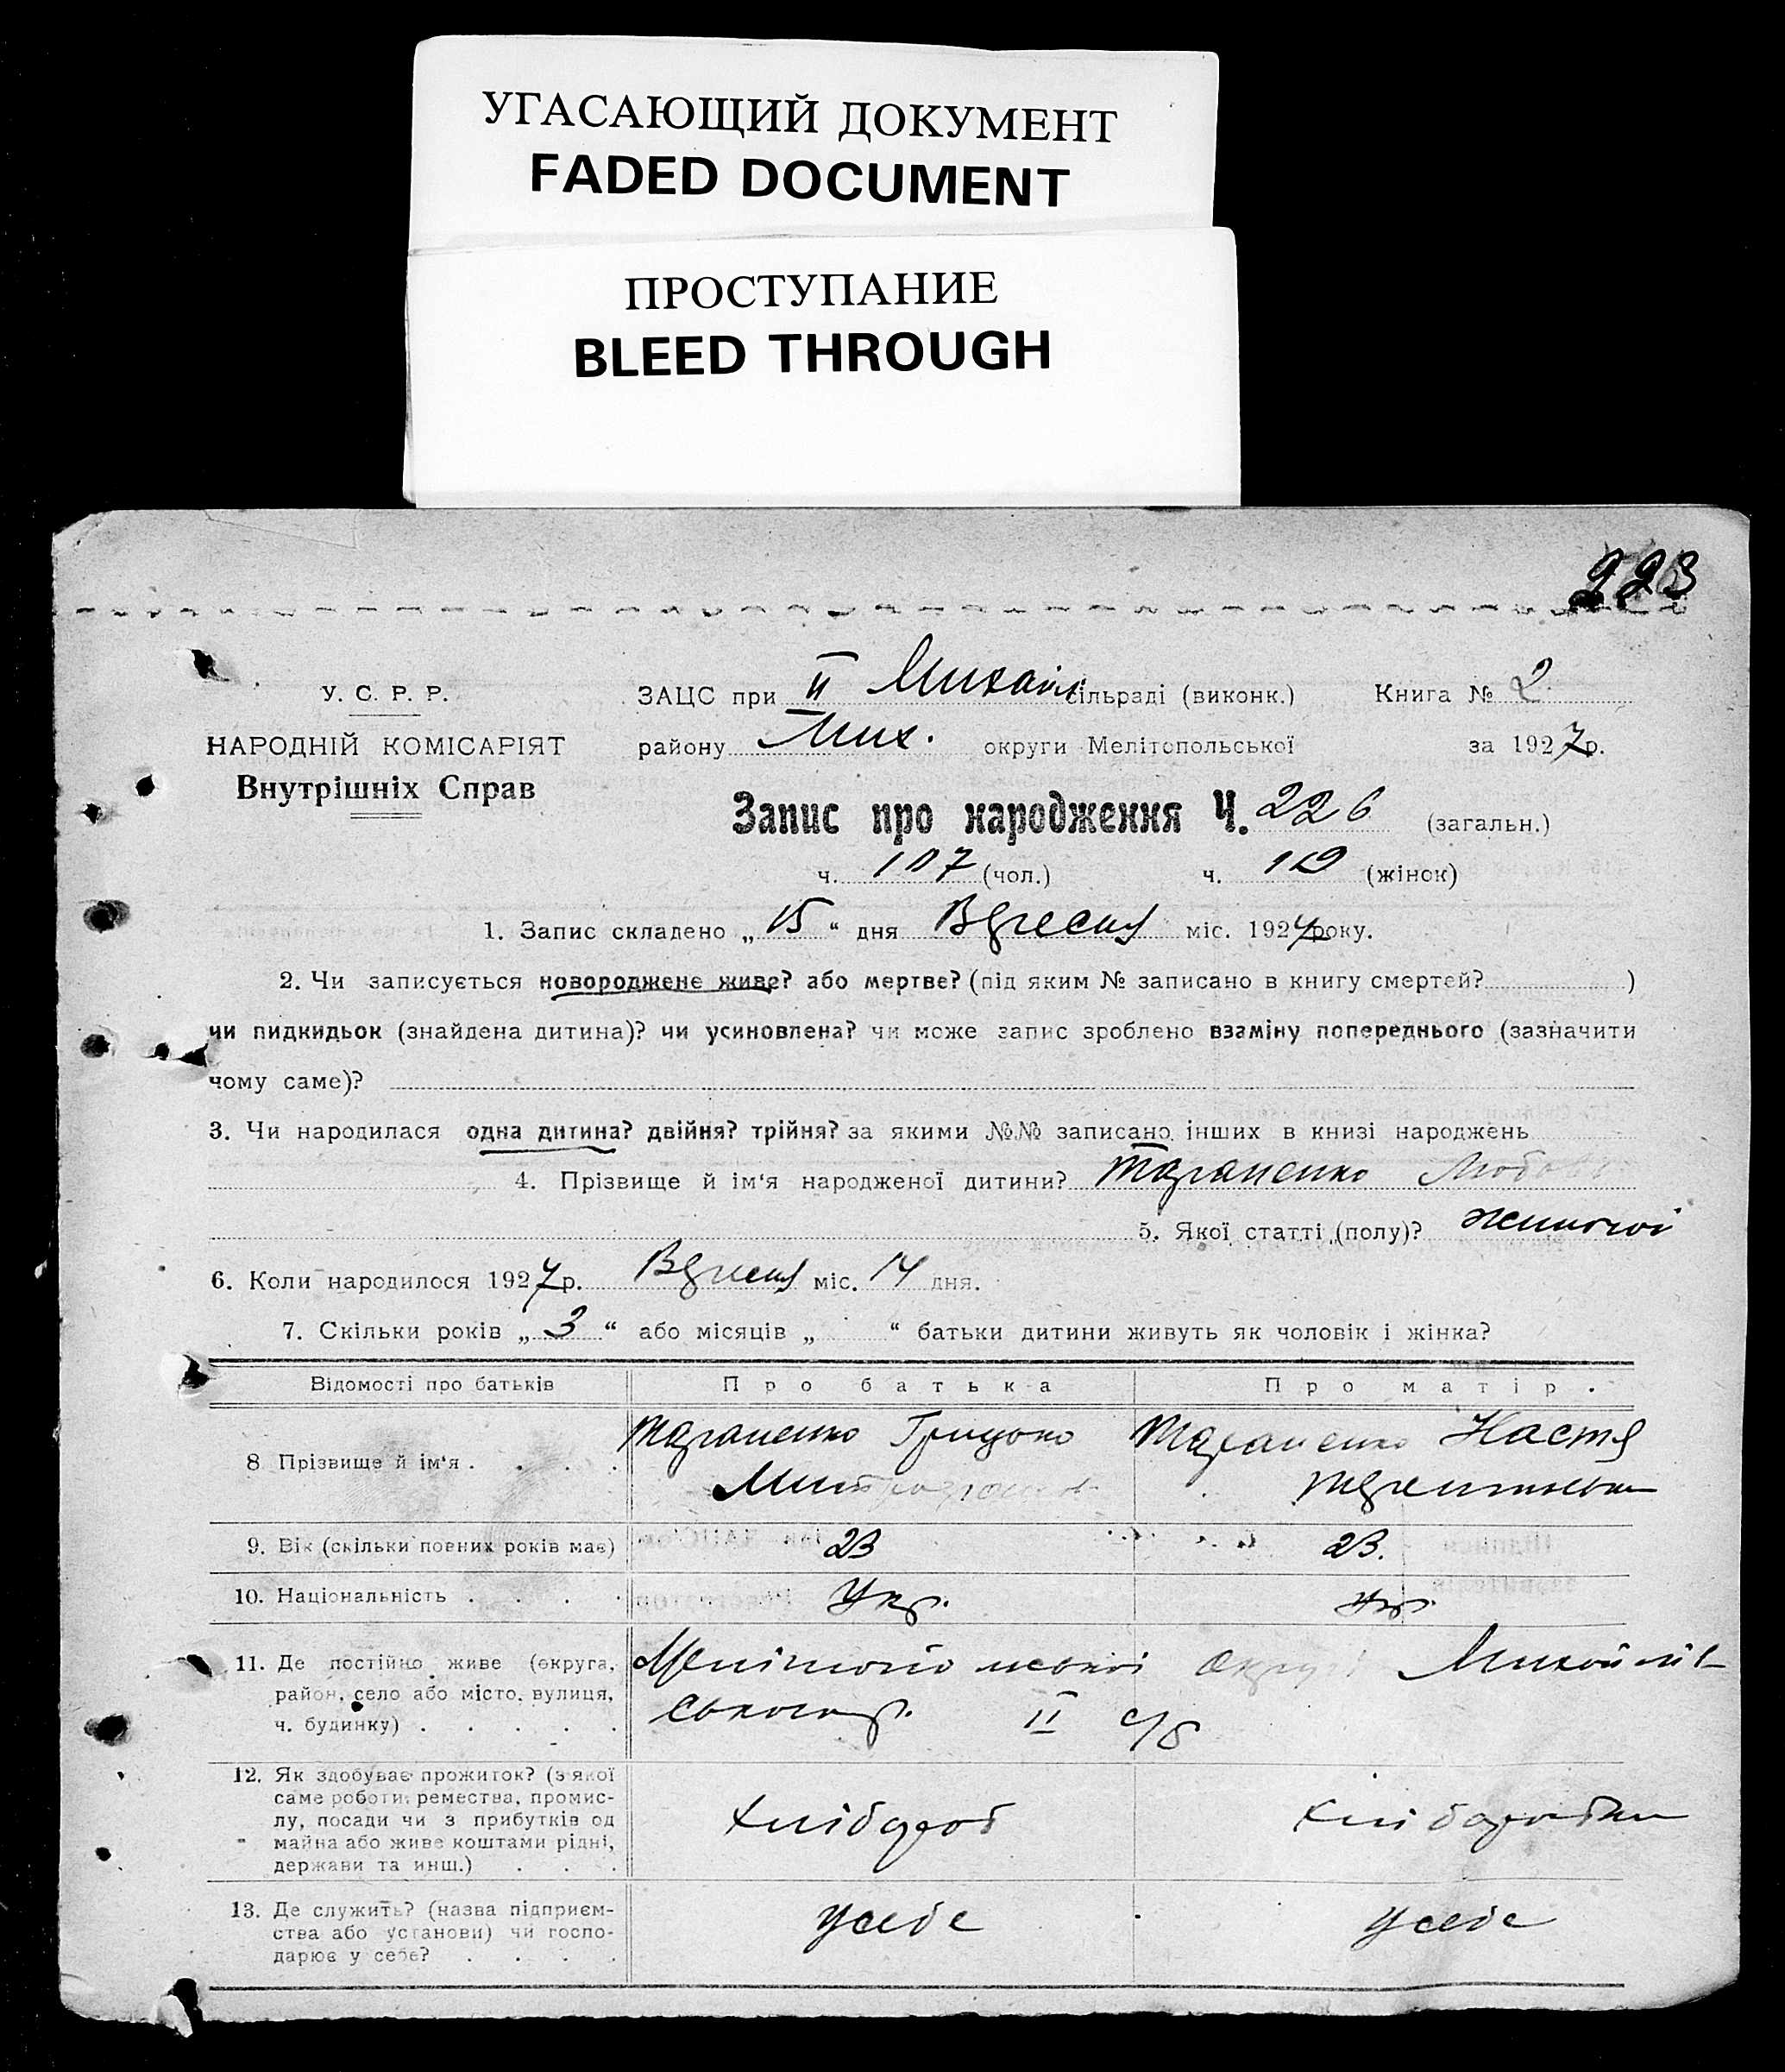 УГАСАЮЩИЙ ДОКУМЕНТ
FADED DOCUMENT
ПРОСТУПАНИЕ
BLEED THROUGH
223
У. С. Р. Р.
НАРОДНІЙ КОМІСАРІЯТ
Внутрішніх Справ
ЗАЦС при II Михайл сільраді (виконк.) Книга № 2
району Мих. округи Мелітопольської за 1927р.
Запис про народження Ч. 226 (загальн.)
ч. 107 (чол.) ч. 119 (жінок)
1. Запис складено „ 15 “ дня Вересня міс. 1927 року.
2. Чи записується новороджене живе? або мертве? (під яким № записано в книгу смертей? )
чи пидкидьок (знайдена дитина)? чи усиновлена? чи може запис зроблено взаміну попереднього (зазначити
чому саме)?
3. Чи народилася одна дитина? двійня? трійня? за якими №№ записано інших в книзі народжень
4. Прізвище й ім‘я народженої дитини? Тараненко Любов
5. Якої статті (полу)? жиночої
6. Коли народилося 1927р. Вересня міс. 14 дня.
7. Скільки років „ 3 “ або місяців „ “ батьки дитини живуть як чоловік і жінка?
Відомості про батьків Про батька Про матір.
8 Прізвище й ім‘я . . . . Тараненко Грицько Тараненко Настя
9. Вік (скільки повних років має) 23 23.
10. Національність . . . . Укр. Укр.
11. Де постійно живе (округа, район, село або місто, вулиця, ч. будинку) . . . . . Мелітопольської округи Михайлів
ського р. II с/р
12. Як здобуває прожиток? (з якої саме роботи, ремества, промислу, посади чи з прибутків од майна або живе коштами рідні, держави та инш.) . . . Хлібороб Хліборобка
13. Де служить? (назва підприємства або установи) чи господарює у себе? . . . . У себе У себе